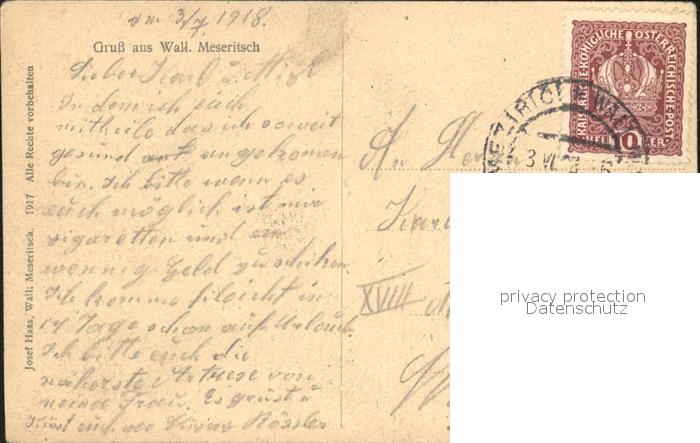 am 3/7. 1918.
Gruß aus Wall. Meseritsch
Lieber Karl u. Mizi
In dem ich euch
mitheile das ich soweit
gesund angekomen
bin. Ich bitte wenn es
euch möglich ist mir
zigaretten und ein
wennig Geld zu schiken.
Ich komme fileicht in
14 Tage schon auf Urlaub.
Ich bitte euch die
näherste Adrese von
meine Frau. Es grüst u
küst euch Rössler
Josef Haas, Wall. Meseritsch. 1917 Alle Rechte vorbehalten
KAISERLICHE KÖNIGLICHE ÖSTERREICHISCHE POST
10 HELLER
An Herrn
Karl
XVIII
privacy protection
Datenschutz